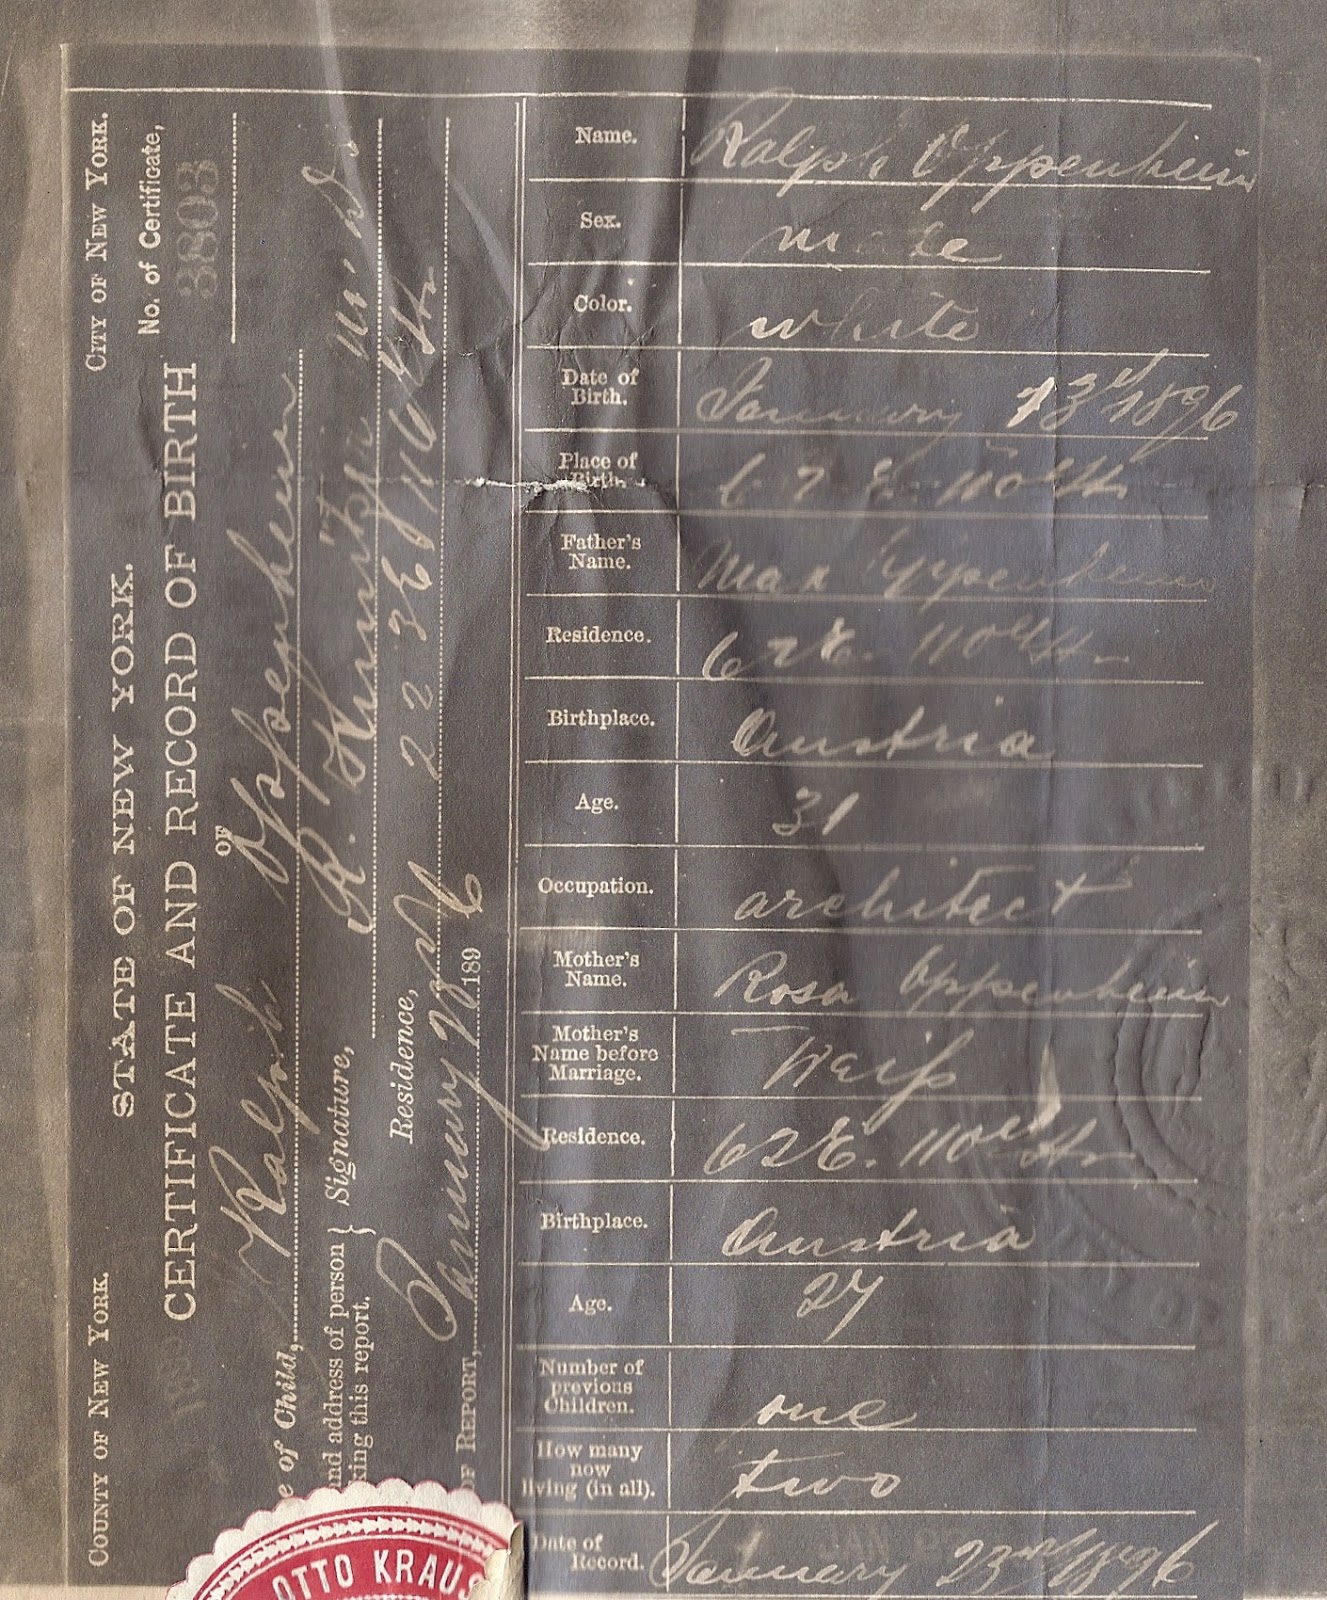 COUNTY OF NEW YORK. CITY OF NEW YORK.
STATE OF NEW YORK.
No. of Certificate,
3803
CERTIFICATE AND RECORD OF BIRTH
OF
e of Child, Ralph Oppenheim
nd address of person } Signature, R.
king this report.
Residence, 223 E 116 Str
OF REPORT, January 28th 1896
Name. Ralph Oppenheim
Sex. male
Color. white
Date of Birth. January 23rd 1896
Place of Birth. 62 E 110th Str
Father's Name. Max Oppenheim
Residence. 62 E. 110th Str
Birthplace. Austria
Age. 31
Occupation. architect
Mother's Name. Rosa Oppenheim
Mother's Name before Marriage. Weiss
Residence. 62 E. 110th Str
Birthplace. Austria
Age. 27
Number of previous Children. one
How many now living (in all). two
Date of Record. January 23rd 1896
OTTO KRAUS